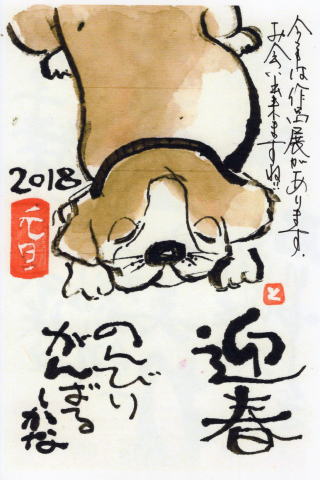 今年は作品展があります.
お会い出来ますね!!
2018
元旦
と
迎春
のんびり
がんばる
しかな